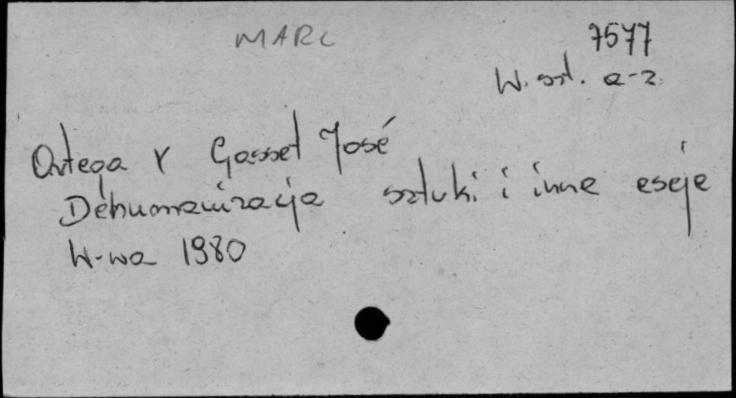 MARC
7577
W. szt. a-z
Ortega Y Gasset José
Dehumanizacja sztuki i inne eseje
W-wa 1980